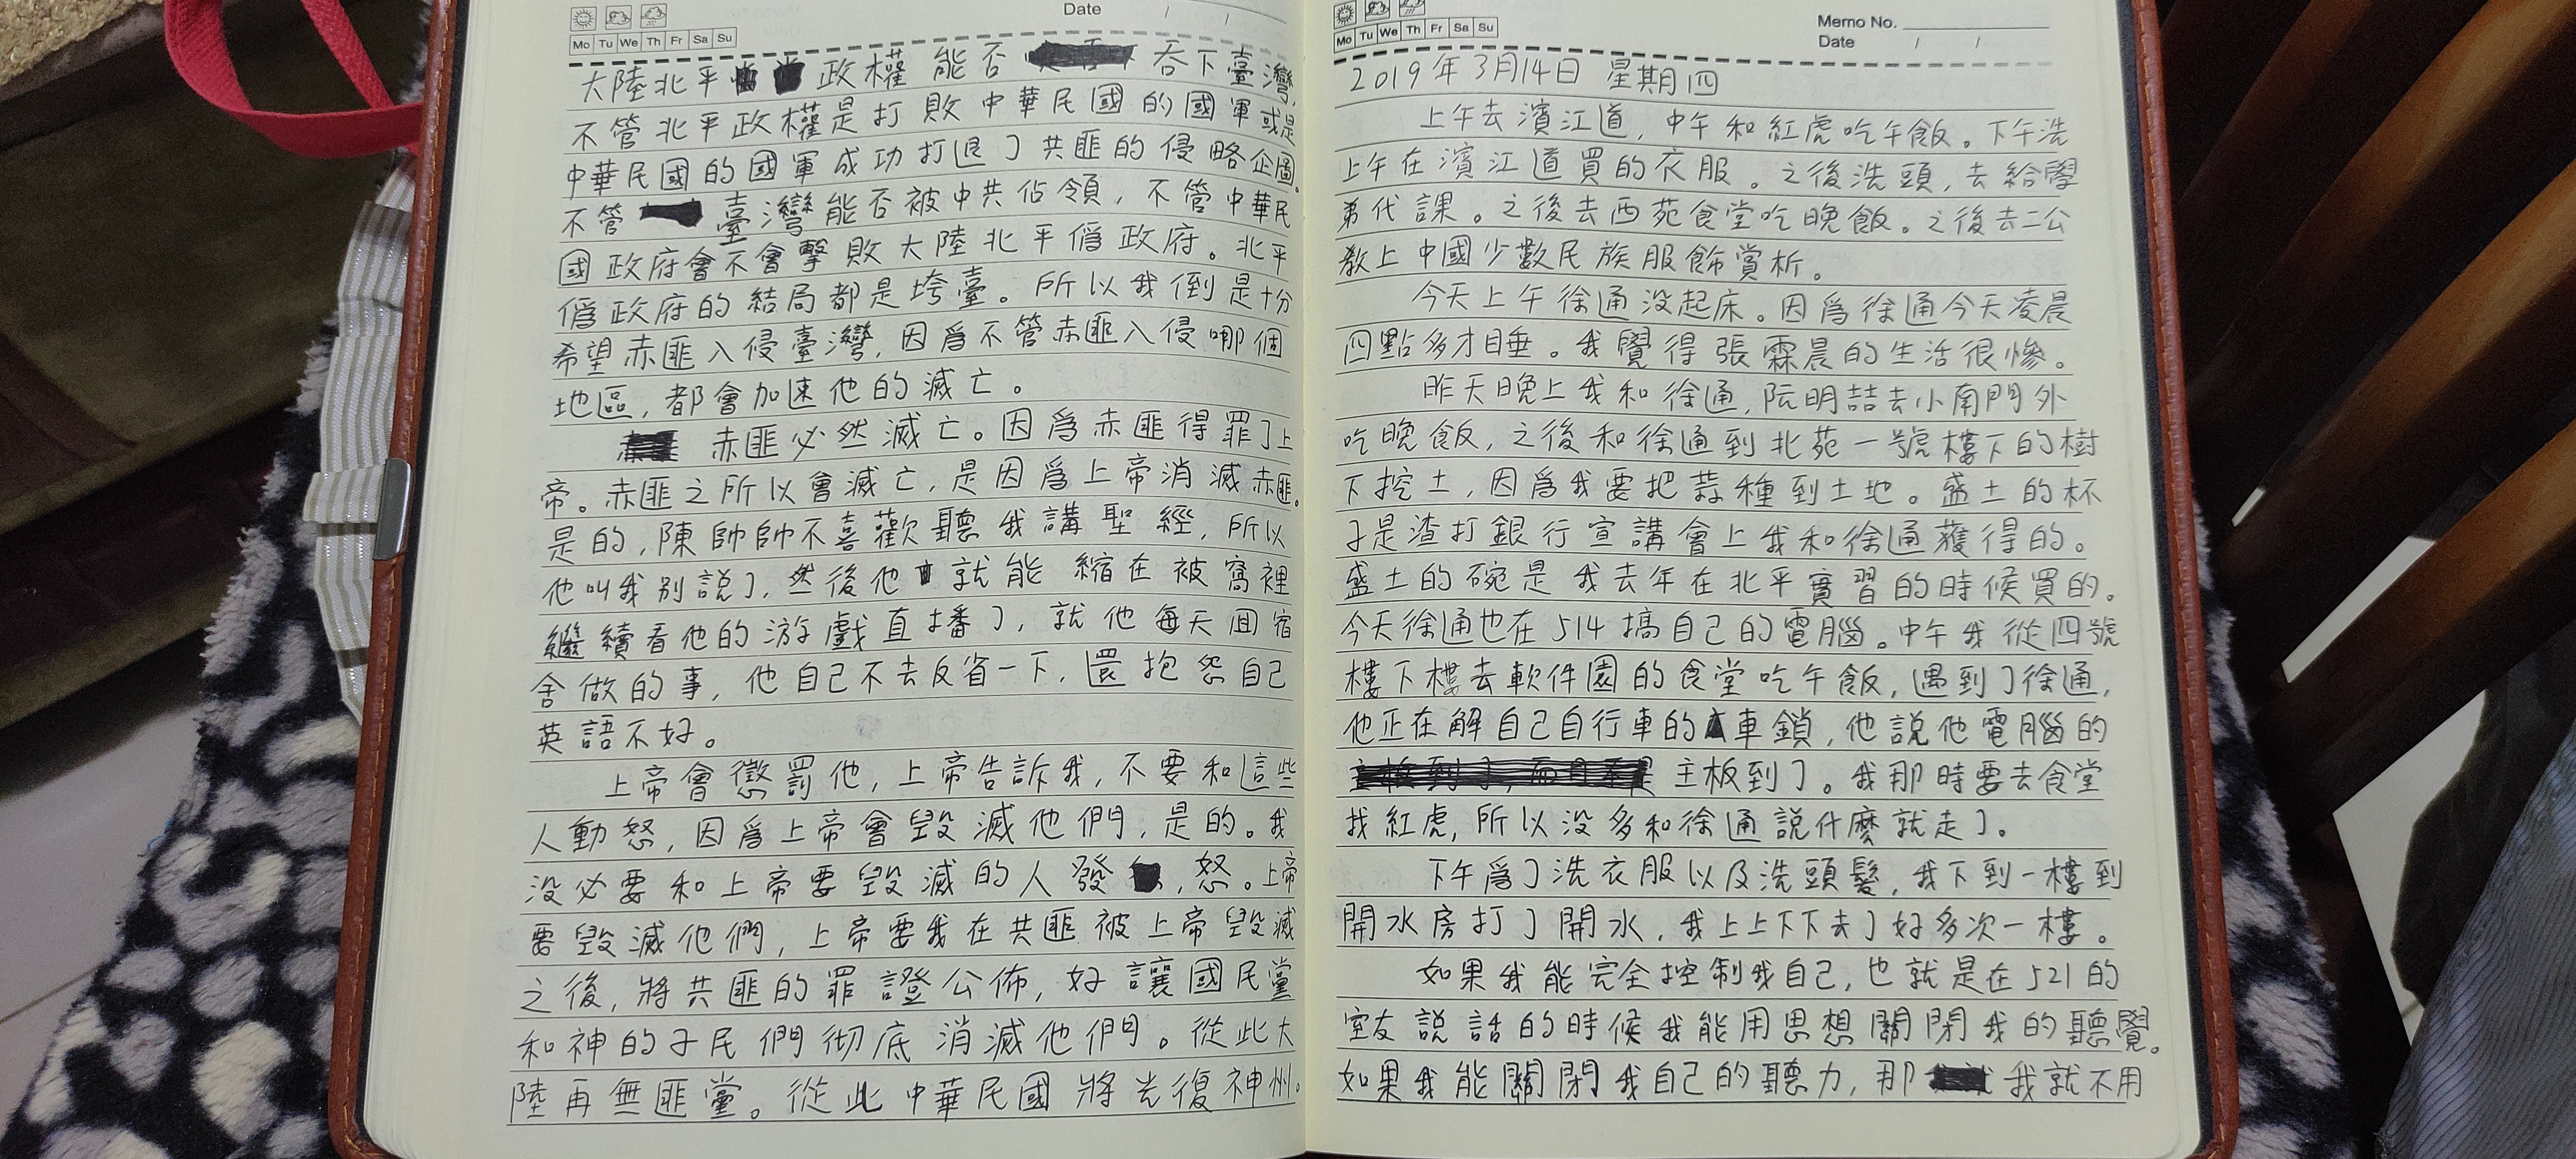 Date / /
Mo Tu We Th Fr Sa Su
大陸北平政權能否吞下臺灣,
不管北平政權是打敗中華民國的國軍或是
中華民國的國軍成功打退了共匪的侵略企圖。
不管臺灣能否被中共佔領，不管中華民
國政府會不會擊敗大陸北平僞政府。北平
僞政府的結局都是垮臺。所以我倒是十分
希望赤匪入侵臺灣，因爲不管赤匪入侵哪個
地區，都會加速他的滅亡。
赤匪必然滅亡。因爲赤匪得罪了上
帝。赤匪之所以會滅亡，是因爲上帝消滅赤匪。
是的，陳帥帥不喜歡聽我講聖經，所以
他叫我别説了，然後他就能縮在被窩裡
繼續看他的游戲直播了，就他每天回宿
舍做的事，他自己不去反省一下，還抱怨自己
英語不好。
上帝會懲罰他，上帝告訴我，不要和這些
人動怒，因爲上帝會毀滅他們，是的。我
没必要和上帝要毀滅的人發怒。上帝
要毀滅他們，上帝要我在共匪被上帝毀滅
之後，將共匪的罪證公佈，好讓國民黨
和神的子民們彻底消滅他們。從此大
陸再無匪黨。從此中華民國將光復神州。
Mo Tu We Th Fr Sa Su
Memo No.
Date / /
2019年3月14日 星期四
上午去濱江道，中午和紅虎吃午飯。下午洗
上午在濱江道買的衣服。之後洗頭，去給學
弟代課。之後去西苑食堂吃晚飯。之後去二公
教上中國少數民族服飾賞析。
今天上午徐通没起床。因爲徐通今天凌晨
四點多才睡。我覺得張霖晨的生活很慘。
昨天晚上我和徐通，阮明喆去小南門外
吃晚飯，之後和徐通到北苑一號樓下的樹
下挖土，因爲我要把蒜種到土地。盛土的杯
子是渣打銀行宣講會上我和徐通獲得的。
盛土的碗是我去年在北平實習的時候買的。
今天徐通也在514搞自己的電腦。中午我從四號
樓下樓去軟件園的食堂吃午飯，遇到了徐通，
他正在解自己自行車的車鎖，他説他電腦的
主板到了。我那時要去食堂
找紅虎，所以没多和徐通説什麼就走了。
下午爲了洗衣服以及洗頭髮，我下到一樓到
開水房打了開水，我上上下下去了好多次一樓。
如果我能完全控制我自己，也就是在521的
室友説話的時候我能用思想關閉我的聽覺。
如果我能關閉我自己的聽力，那我就不用